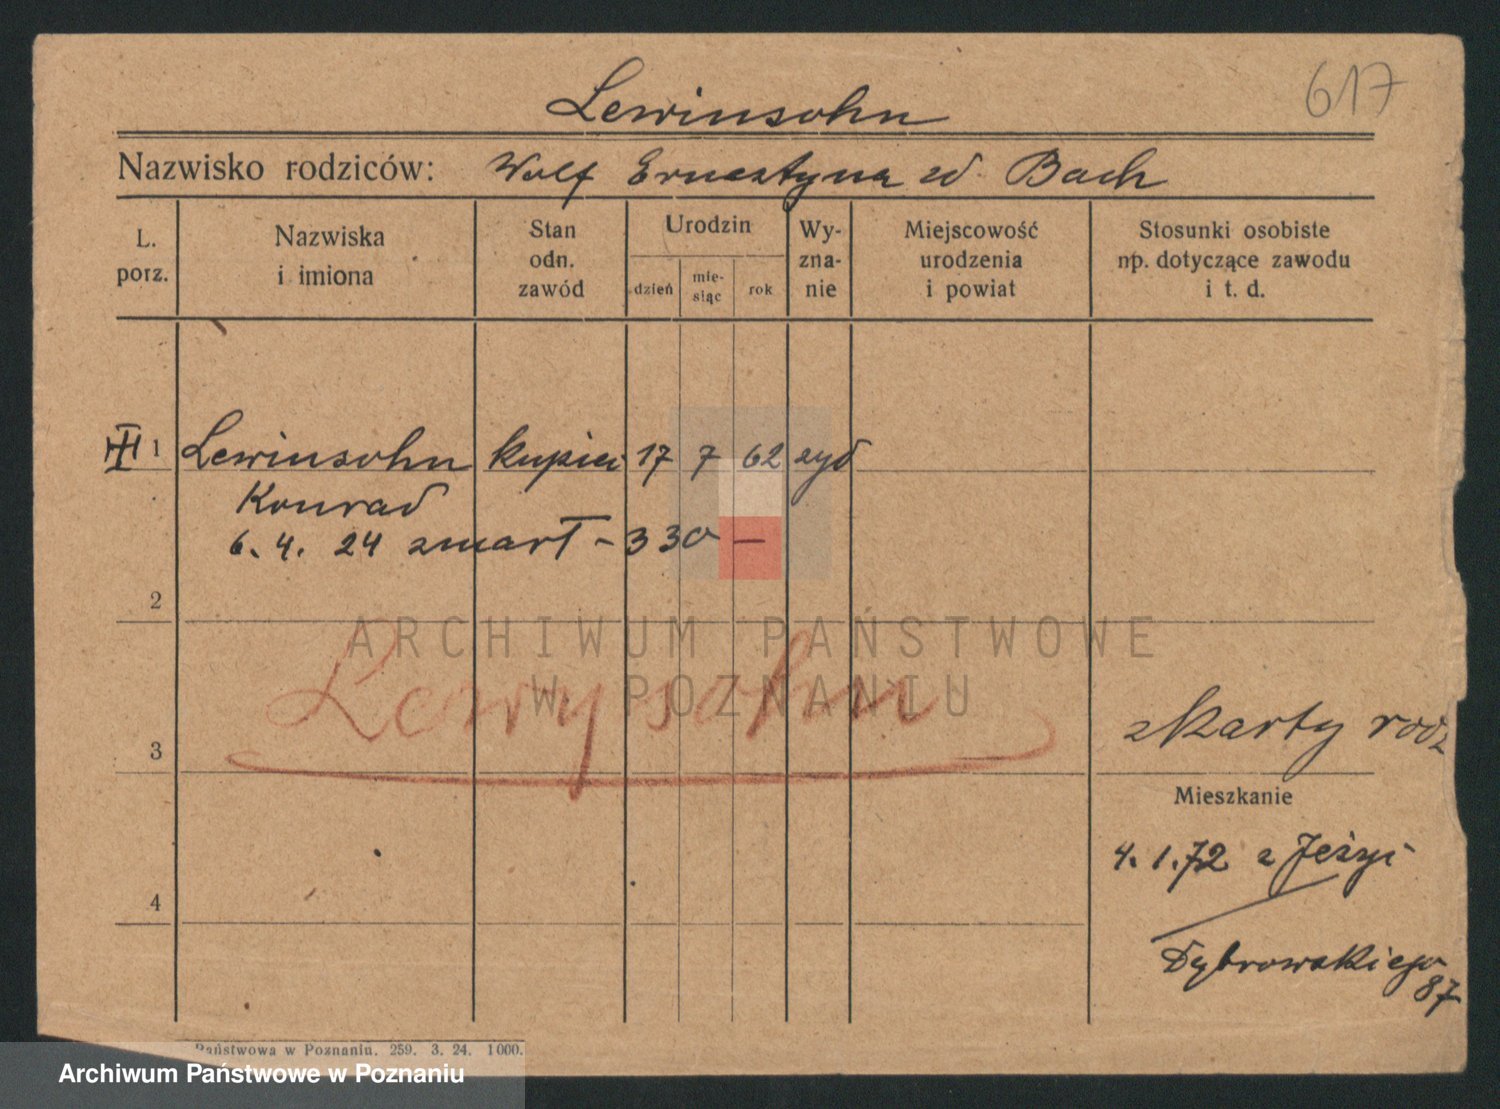 617
Lewinsohn
Nazwisko rodziców: Wolf Ernestyna zd Bach
L. porz.
Nazwiska i imiona
Stan odn. zawód
Urodzin
dzień
mie-
siąc
rok
Wy-
zna-
nie
Miejscowość urodzenia i powiat
Stosunki osobiste np. dotyczące zawodu i t. d.
1 Lewinsohn kupiec 17 7 62 żyd
Konrad
6. 4. 24 zmarł - 330 —
2
ARCHIWUM PAŃSTWOWE
W POZNANIU
Lewysohn
3
z karty rodz
Mieszkanie
4. 1. 72 z Jeżyc
4
Dąbrowskiego
87
Państwowa w Poznaniu. 259. 3. 24. 1000.
Archiwum Państwowe w Poznaniu